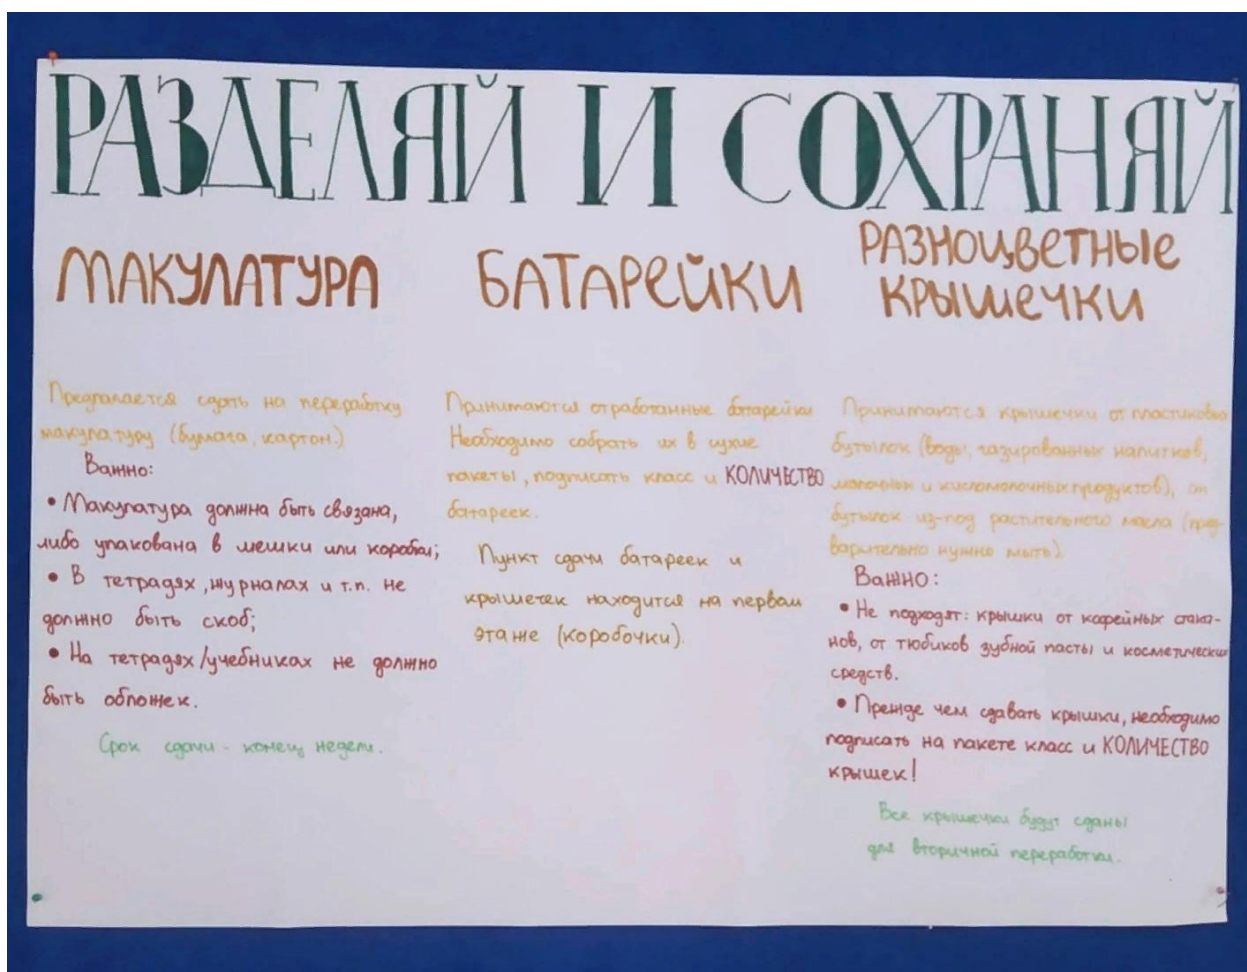 РАЗДЕЛЯЙ И СОХРАНЯЙ
МАКУЛАТУРА
Предлагается сдать на переработку
макулатуру (бумага, картон.)
Важно:
• Макулатура должна быть связана,
либо упакована в мешки или коробки;
• В тетрадях, журналах и т.п. не
должно быть скоб;
• На тетрадях/учебниках не должно
быть обложек.
Срок сдачи - конец недели.
БАТАРЕЙКИ
Принимаются отработанные батарейки
Необходимо собрать их в сухие
пакеты, подписать класс и КОЛИЧЕСТВО
батареек.
Пункт сдачи батареек и
крышечек находится на первом
этаже (коробочки).
РАЗНОЦВЕТНЫЕ
КРЫШЕЧКИ
Принимаются крышечки от пластиковых
бутылок (воды, газированных напитков,
молочных и кисломолочных продуктов), от
бутылок из-под растительного масла (пред-
варительно нужно мыть)
Важно:
• Не подходят: крышки от кофейных стака-
нов, от тюбиков зубной пасты и косметических
средств.
• Прежде чем сдавать крышки, необходимо
подписать на пакете класс и КОЛИЧЕСТВО
крышек!
Все крышечки будут сданы
для вторичной переработки.